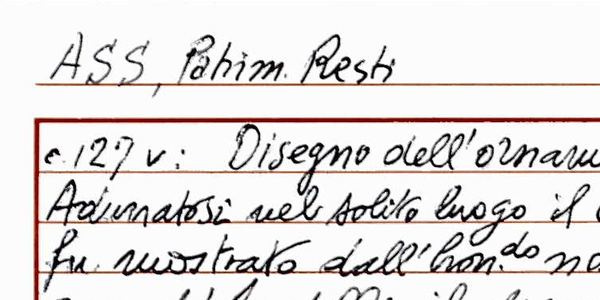 ASS, Patrim. Resti
c. 127 v: Disegno dell'ornam
Adunatosi nel solito luogo il
fu mostrato dall'hon.do no